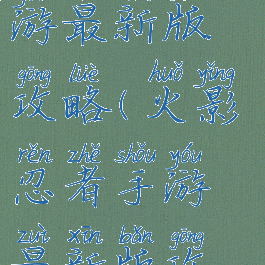 游最新版
gōng lüè huǒ yǐng
攻略(火影
rěn zhě shǒu yóu
忍者手游
zuì xīn bǎn gōng
最新版攻